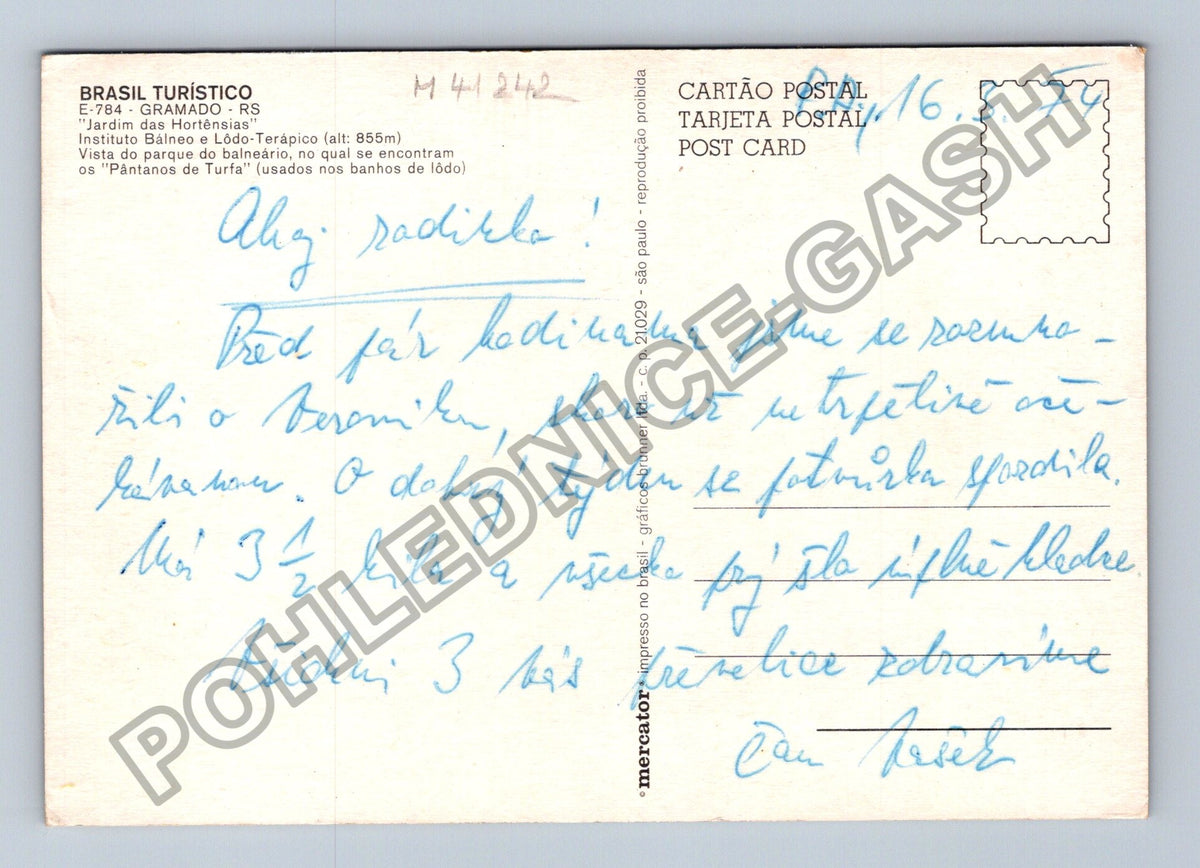 BRASIL TURÍSTICO
E-784 - GRAMADO - RS
"Jardim das Hortênsias"
Instituto Bálneo e Lôdo-Terápico (alt: 855m)
Vista do parque do balneário, no qual se encontram
os "Pântanos de Turfa" (usados nos banhos de lôdo)
M 41242
CARTÃO POSTAL
TARJETA POSTAL
POST CARD
16.3.74
Ahoj rodinko!
Před pár hodinama jsme se rozmno-
žili o Veroniku, skoro už netrpělivě oče-
kávanou. O dobrý týden se potvůrka spozdila.
Má 3 1/2 kila a všecko prý šlo úplně hladce.
Všichni 3 vás převelice zdravíme
Vašek
mercator impresso no brasil - gráficos brunner ltda. - c. p. 21.029 - são paulo - reprodução proibida
POHLEDNICE-GASH